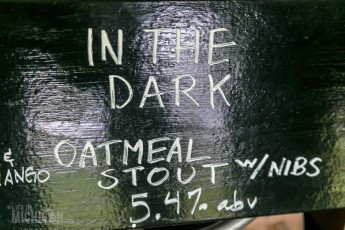 IN THE
DARK
&
MANGO
OATMEAL
STOUT w/NIBS
5.4% abv